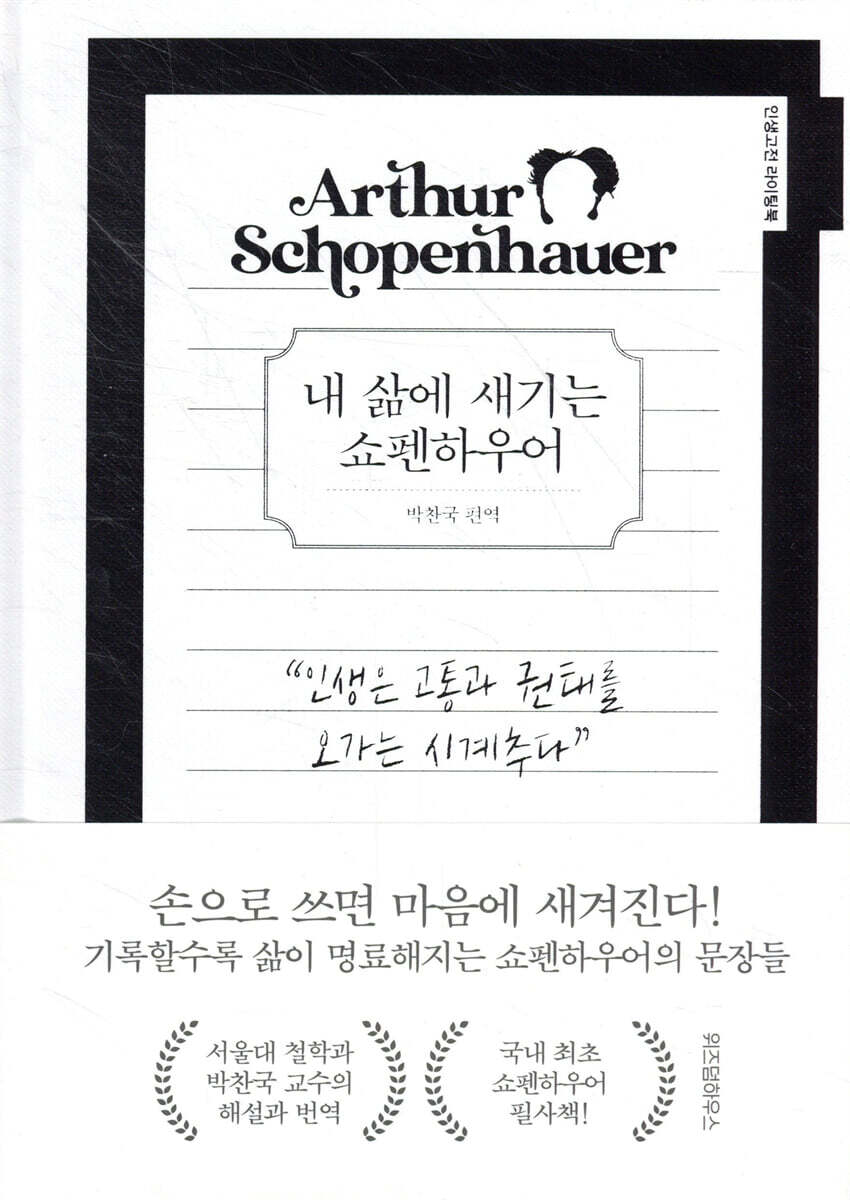 인생고전 라이팅북
Arthur
Schopenhauer
내 삶에 새기는
쇼펜하우어
박찬국 편역
“인생은 고통과 권태를
오가는 시계추다”
손으로 쓰면 마음에 새겨진다!
기록할수록 삶이 명료해지는 쇼펜하우어의 문장들
서울대 철학과
박찬국 교수의
해설과 번역
국내 최초
쇼펜하우어
필사책!
위즈덤하우스